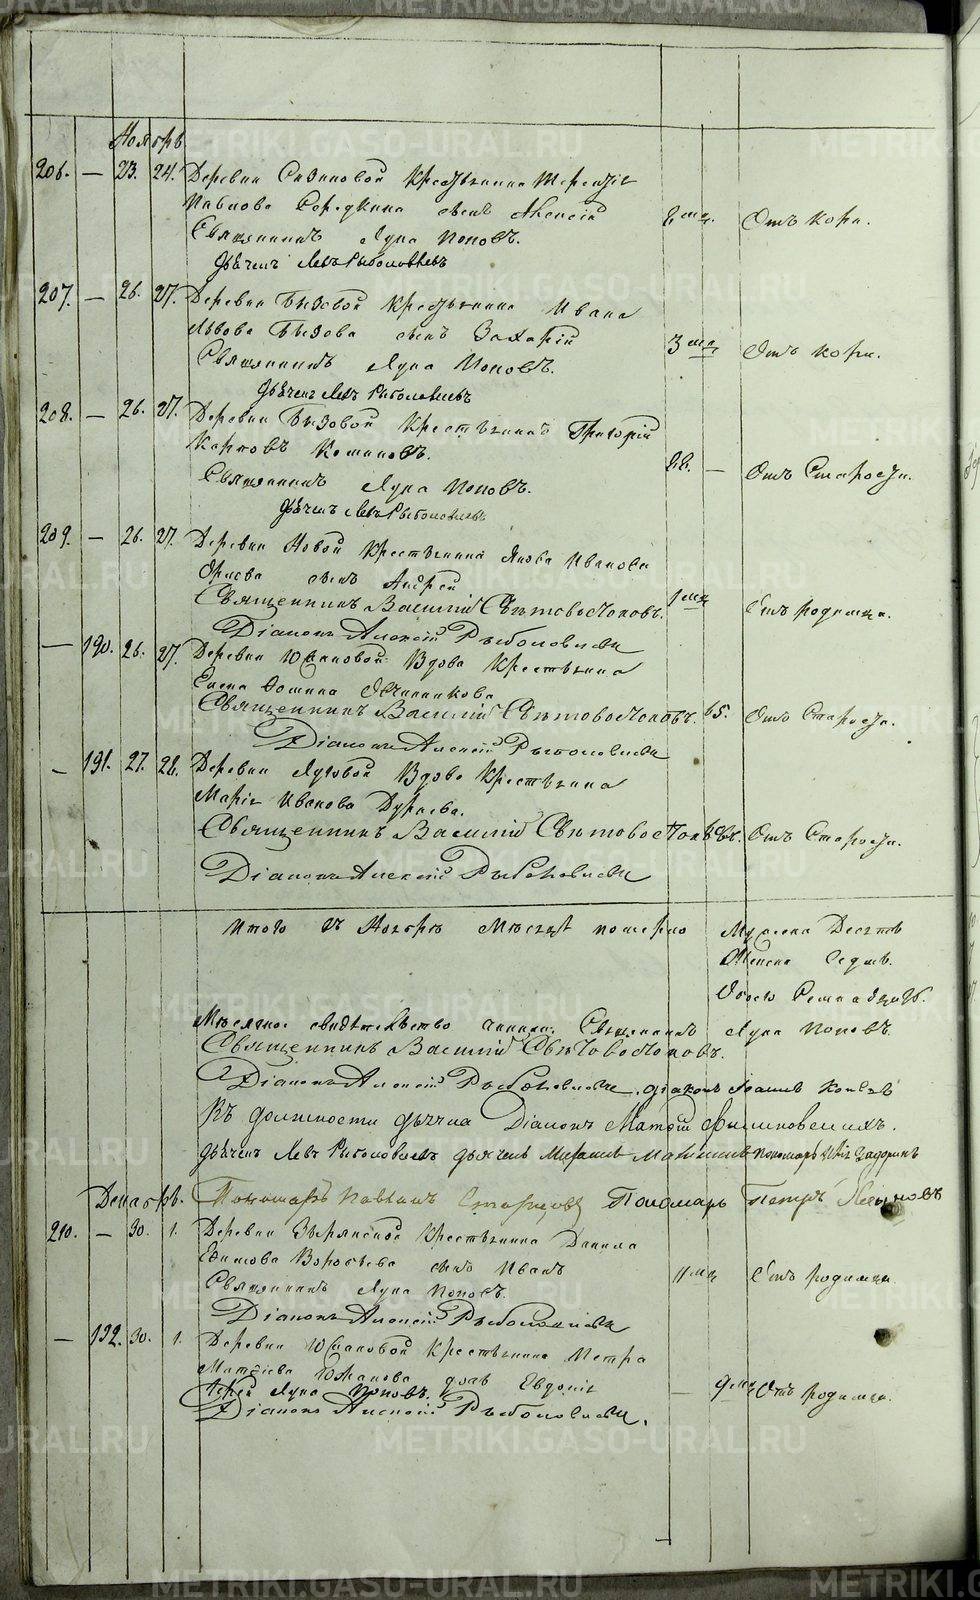 Ноябрь
206. — 23. 24. Деревни Сизиковой Крестьянина Терентія
Павлова сынъ Алексій 2 мц. Отъ кори.
Священникъ Лука Поповъ.
Дьячекъ Левъ Рыболовлевъ
207. — 26. 27. Деревни Бызовой Крестьянина Ивана
Львова Бызова сынъ Захарій 3 мц. Отъ кори.
Священникъ Лука Поповъ.
Дьячекъ Левъ Рыболовлевъ
208. — 26. 27. Деревни Бызовой Крестьянинъ Григорій
Карповъ 82. — Отъ Старости.
Священникъ Лука Поповъ.
Дьячекъ Левъ Рыболовлевъ
209. — 26. 27. Деревни Новой Крестьянина Якова Иванова
Орлова сынъ Андрей 1 мц Отъ родимца.
Священникъ Василій Свѣтовостоковъ.
Діаконъ Алексій Рыболовлевъ
— 190. 26. 27. Деревни Южаковой Вдова Крестьянка
Елена Фомина Овчинникова
Священникъ Василій Свѣтовостоковъ. 65. Отъ Старости.
Діаконъ Алексій Рыболовлевъ
— 191. 27. 28. Деревни Луговой Вдова Крестьянка
Марія Иванова
Священникъ Василій Свѣтовостоковъ. Отъ Старости.
Діаконъ Алексій Рыболовлевъ
Итого въ Ноябрѣ Мѣсяцѣ померло Мужеска Десять
Женска Седмь.
Обоего Семнадцать.
свидѣтельство чинили: Священникъ Лука Поповъ.
Священникъ Василій Свѣтовостоковъ.
Діаконъ Алексій Рыболовлевъ. діаконъ Іоаннъ
Въ должности дьячка Діаконъ Матѳій
Дьячекъ Левъ Рыболовлевъ дьячекъ пономарь
Декабрь. Пономарь Павелъ Старцовъ Пономарь Петръ
210. — 30. 1. Деревни Зырянской Крестьянина Данила
Ефимова Воробьева сынъ Иванъ 11 мц Отъ родимца.
Священникъ Лука Поповъ.
Діаконъ Алексій Рыболовлевъ
— 192. 30. 1. Деревни Южаковой Крестьянина Петра
Матѳіева Южакова дочь Евдокія — 9 мц. Отъ родимца.
Іерей Лука Поповъ.
Діаконъ Алексій Рыболовлевъ.
METRIKI.GASO-URAL.RU